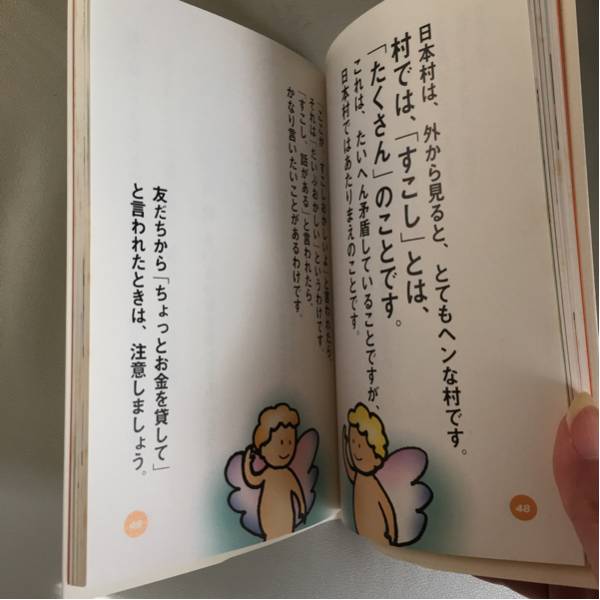 日本村は、外から見ると、とてもヘンな村です。
村では、「すこし」とは、
「たくさん」のことです。
これは、たいへん矛盾していることですが、
日本村ではあたりまえのことです。
48
「ここが、すこしおかしいよ」と言われたら、
それは「だいぶおかしい」というわけです。
「すこし、話がある」と言われたら、
かなり言いたいことがあるわけです。
友だちから「ちょっとお金を貸して」
と言われたときは、注意しましょう。
49